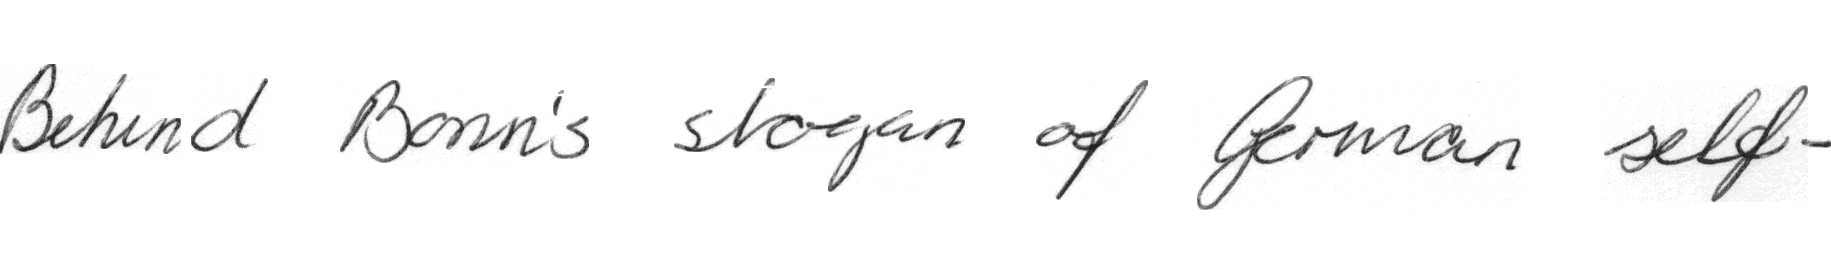 Behind Bonn's slogan of German self-